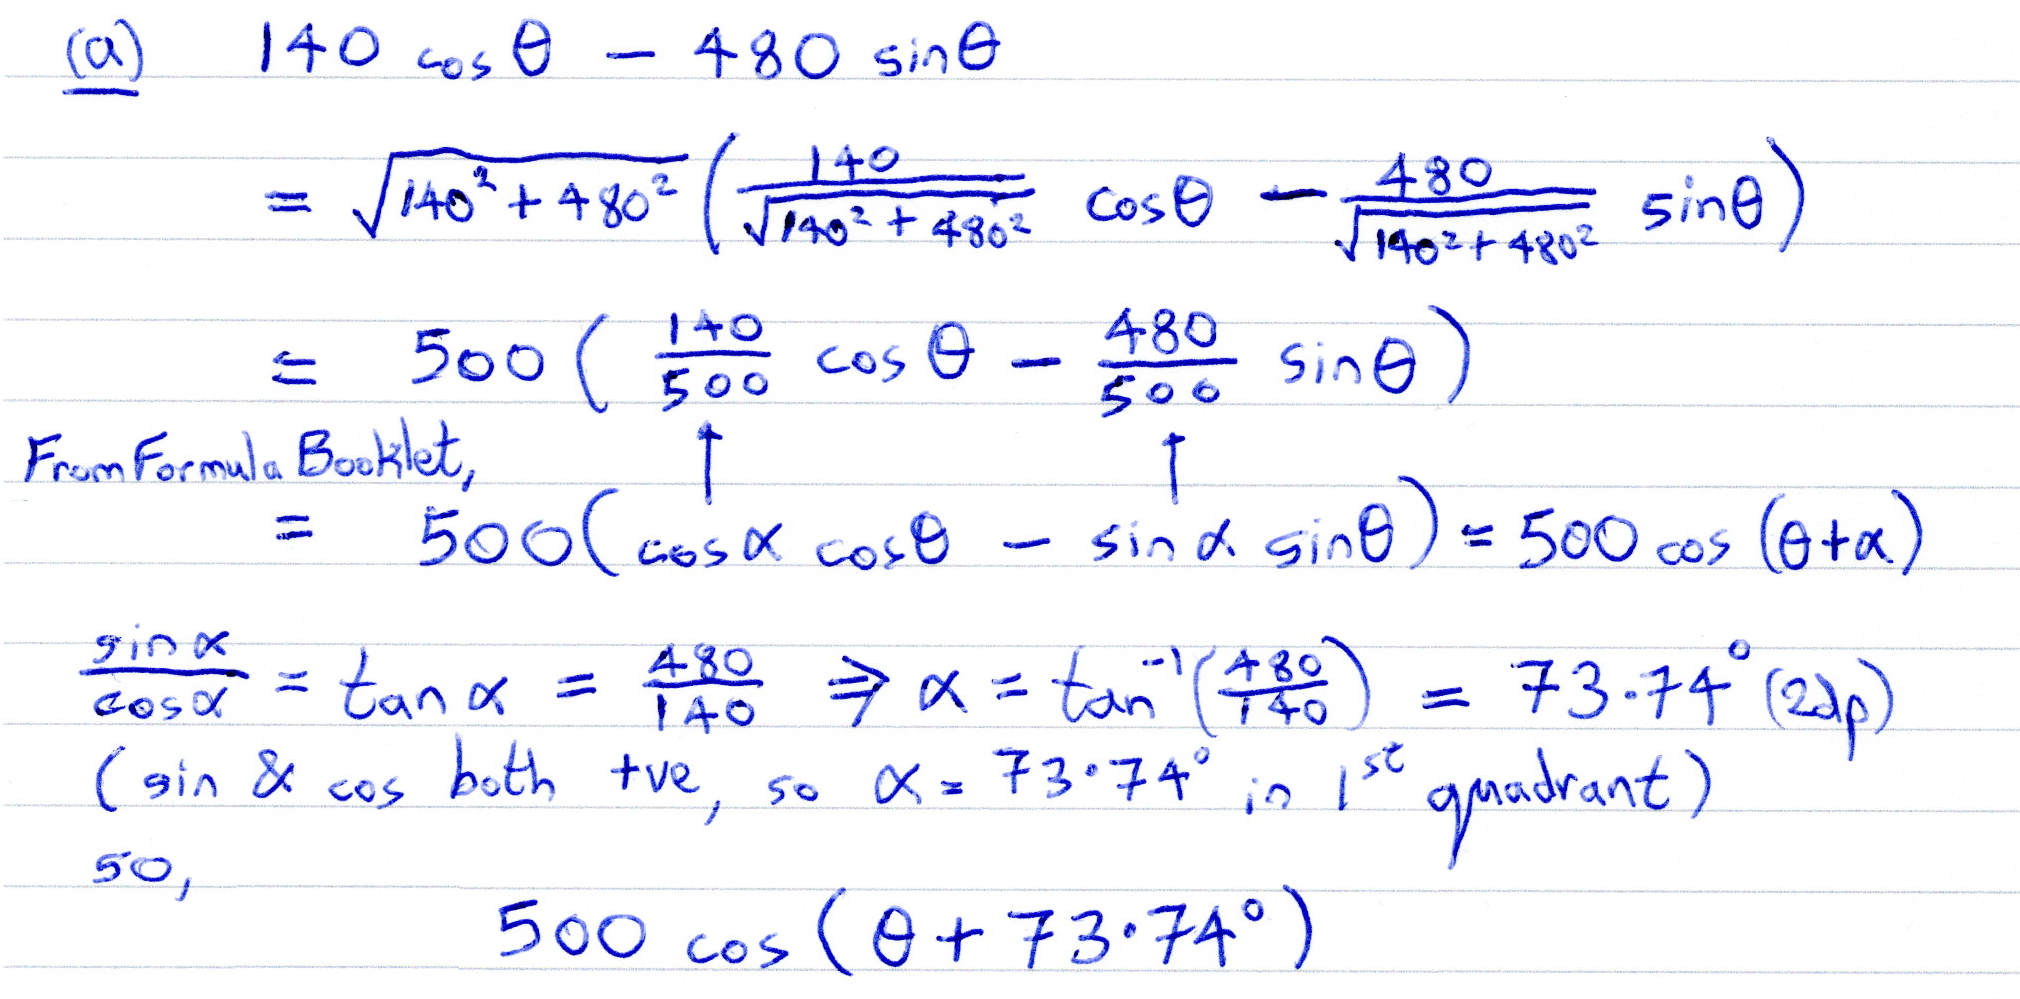 (a) 140 cos θ − 480 sin θ
= √(140² + 480²) ( 140/√(140² + 480²) cos θ − 480/√(140² + 480²) sin θ )
= 500 ( 140/500 cos θ − 480/500 sin θ )
From Formula Booklet, ↑ ↑
= 500 ( cos α cos θ − sin α sin θ ) = 500 cos (θ+α)
sin α/cos α = tan α = 480/140 ⇒ α = tan⁻¹(480/140) = 73.74° (2dp)
( sin & cos both +ve, so α = 73.74° in 1st quadrant )
so,
500 cos ( θ + 73.74° )